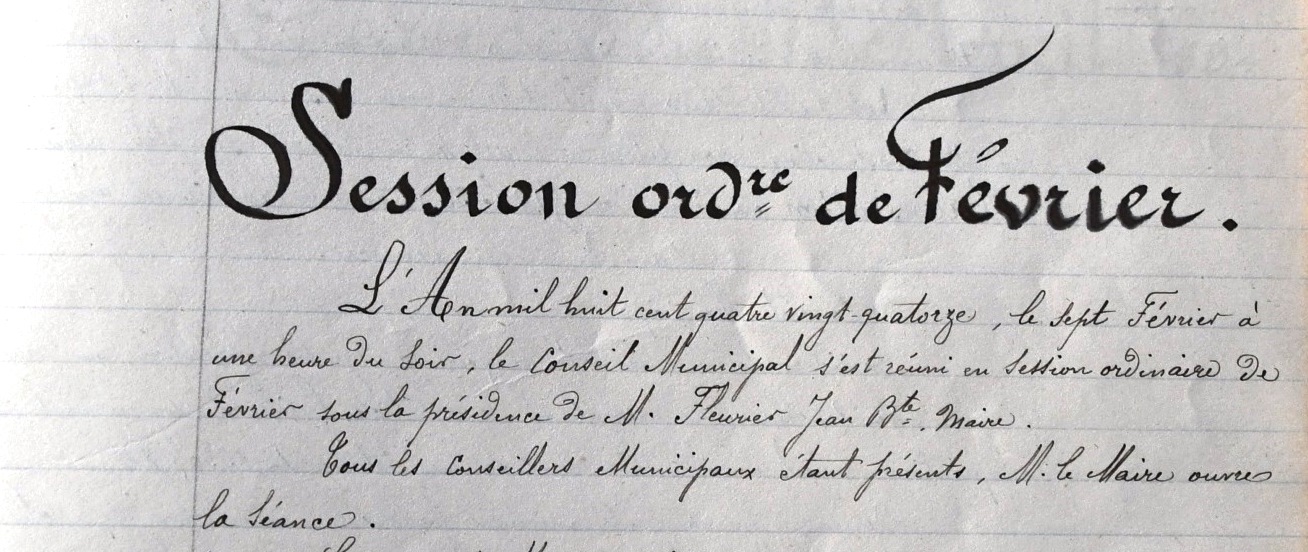 Session ord.re de Février.
L'An mil huit cent quatre vingt quatorze, le sept Février à
une heure du soir, le Conseil Municipal s'est réuni en session ordinaire de
Février sous la présidence de M. Fleurier Jean Bte, Maire.
Tous les Conseillers Municipaux étant présents, M. le Maire ouvre
la séance.